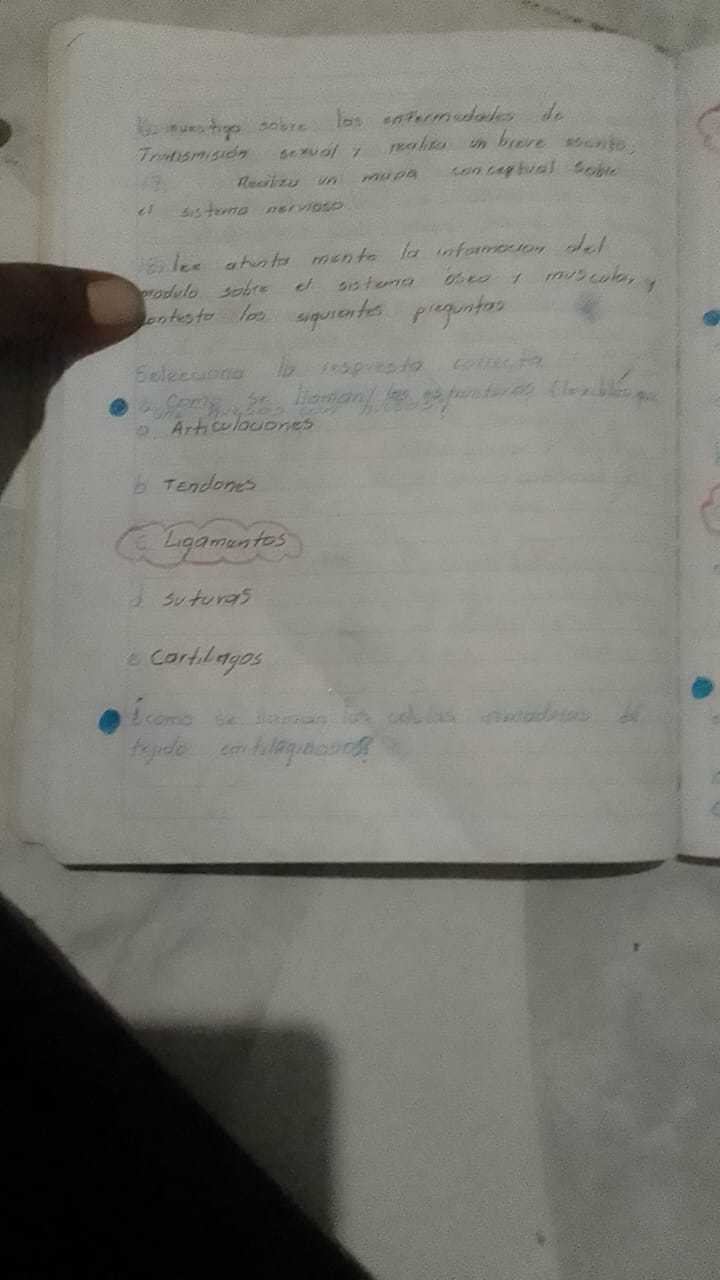 16. investigo sobre las enfermedades de
Transmisión sexual y realizo un breve escrito;
17. Realizo un mapa conceptual sobre
el sistema nervioso
18. lee atenta mente la informacion del
modulo sobre el sistema óseo y muscular y
contesto las siguientes preguntas
Selecciona la respuesta correcta
Como se llaman las estructuras flexibles que
une huesos con huesos?
a Articulaciones
b Tendones
c Ligamentos
d suturas
e cartilagos
¿como se llaman las celulas del
tejido cartilaginoso?